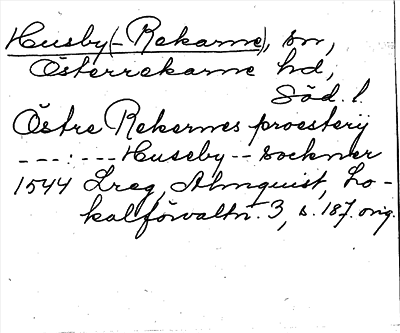 Husby(-Rekarne), sn,
Österrekarne hd,
Söd. l.
Östre Rekernes proesterij
---:--- Huseby -- sockner
1544 Lreg, Almquist, Lo-
kalförvaltn. 3, s. 187. orig.